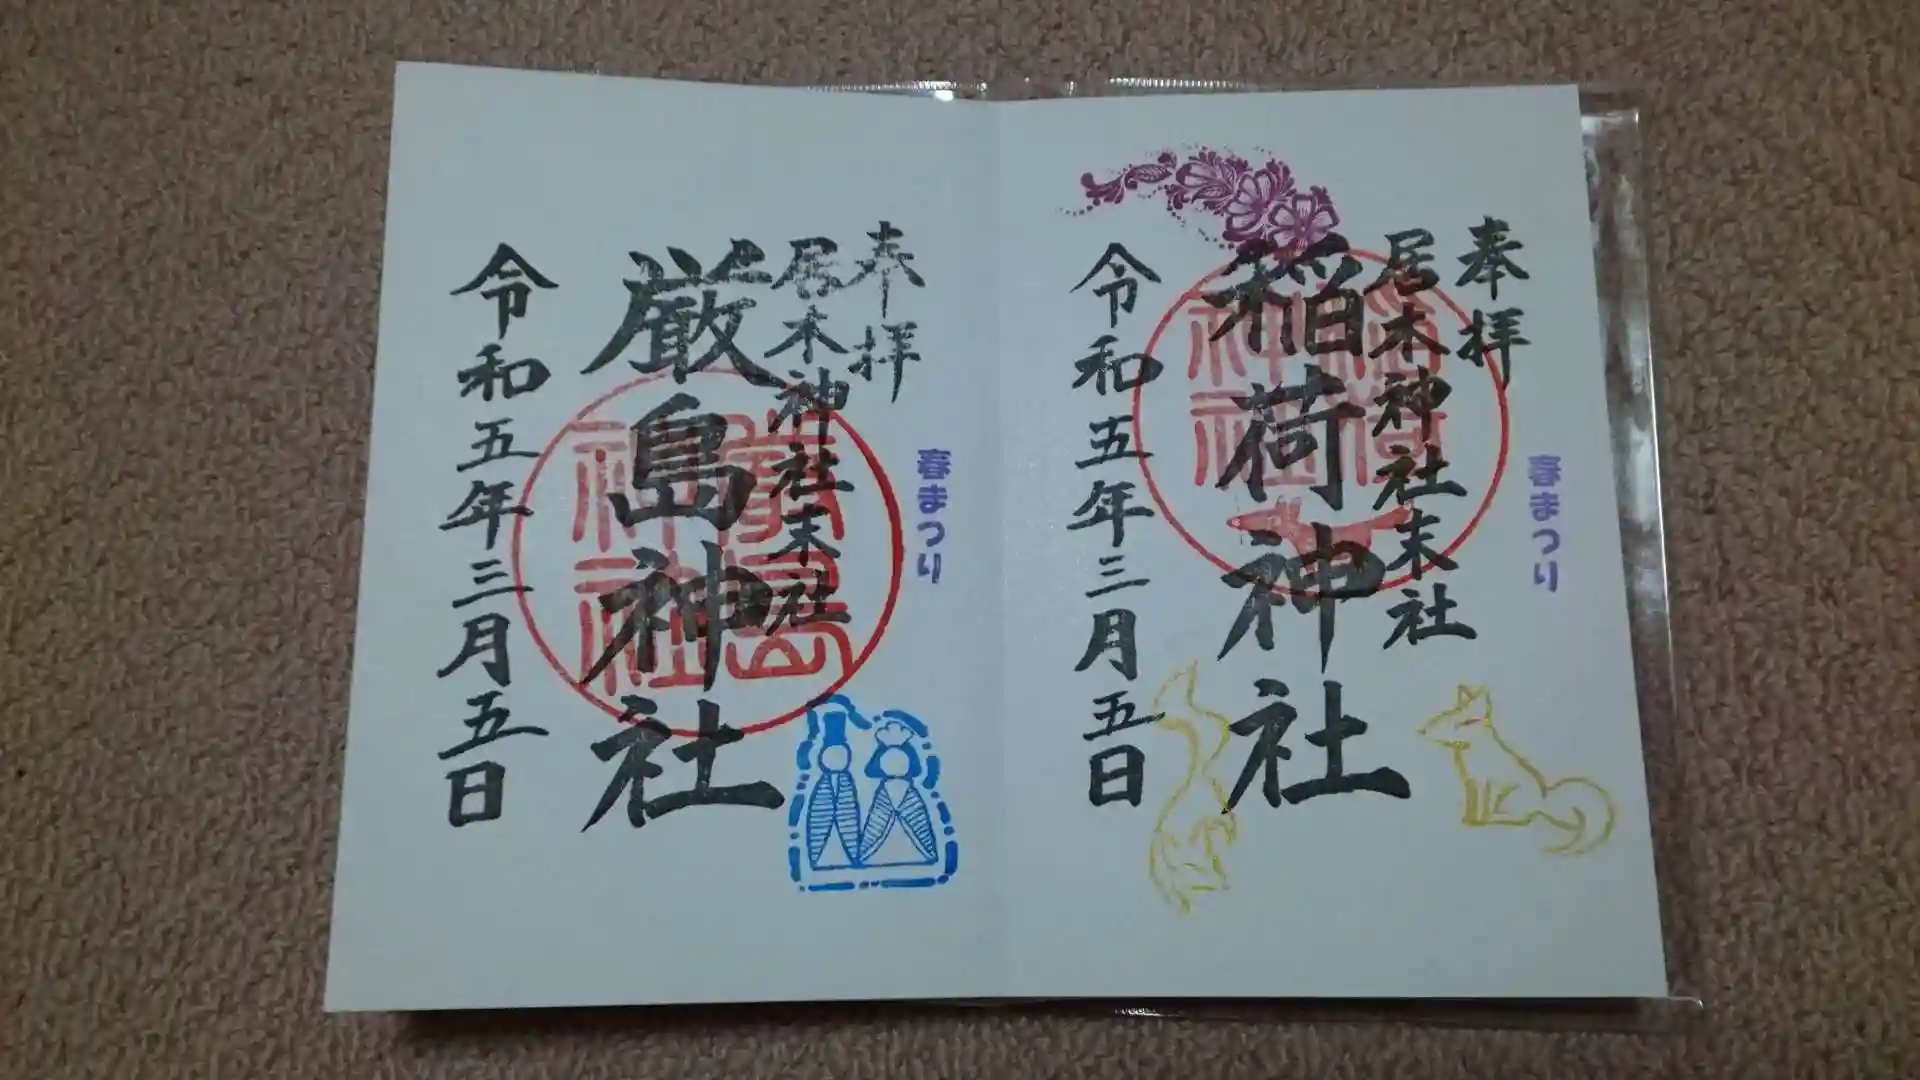 奉拝
居木神社末社
稲荷神社
稲荷神社
令和五年三月五日
春まつり
奉拝
居木神社末社
厳島神社
厳島神社
令和五年三月五日
春まつり